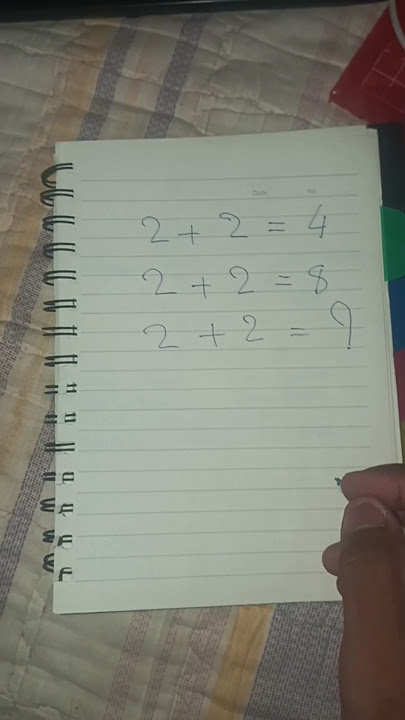 Date No
2 + 2 = 4
2 + 2 = 8
2 + 2 = 9